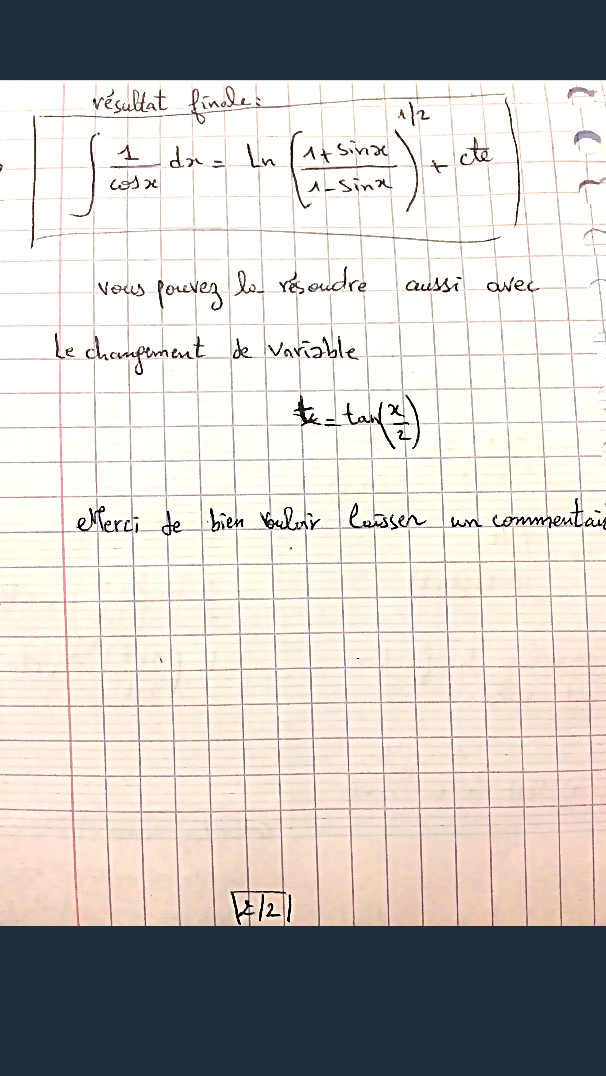 résultat finale:
∫ 1/cosx dx = ln ((1+sinx)/(1-sinx))^1/2 + cte
vous pouvez le résoudre aussi avec
le changement de variable
t = tan(x/2)
Merci de bien vouloir laisser un commentai
2/2